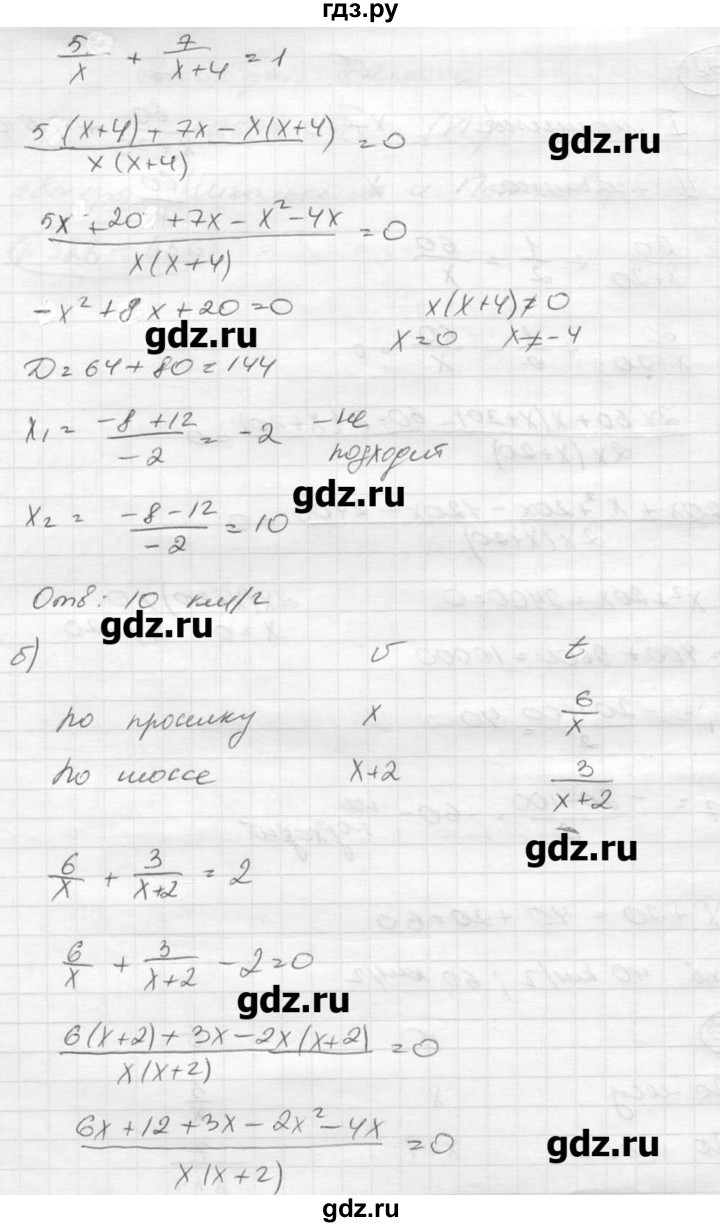 гдз.ру
5/x + 7/(x+4) = 1
(5(x+4) + 7x - x(x+4))/(x(x+4)) = 0
gdz.ru
(5x + 20 + 7x - x² - 4x)/(x(x+4)) = 0
-x² + 8x + 20 = 0 x(x+4) ≠ 0
gdz.ru
x = 0 x ≠ -4
D = 64 + 80 = 144
x₁ = (-8 + 12)/(-2) = -2 - не подходит
gdz.ru
x₂ = (-8 - 12)/(-2) = 10
Отв: 10 км/г
gdz.ru
б) v t
по проселку x 6/x
по шоссе x+2 3/(x+2)
gdz.ru
6/x + 3/(x+2) = 2
6/x + 3/(x+2) - 2 = 0
gdz.ru
(6(x+2) + 3x - 2x(x+2))/(x(x+2)) = 0
(6x + 12 + 3x - 2x² - 4x)/(x(x+2)) = 0
gdz.ru
gdz.ru